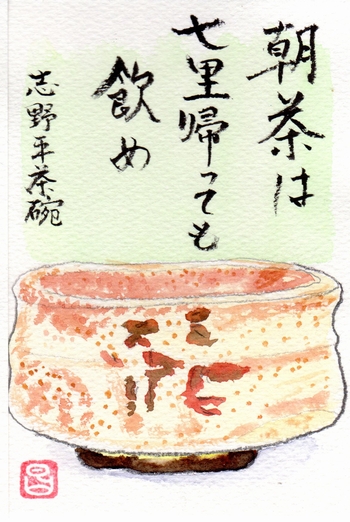 朝茶は
七里帰っても
飲め
志野平茶碗